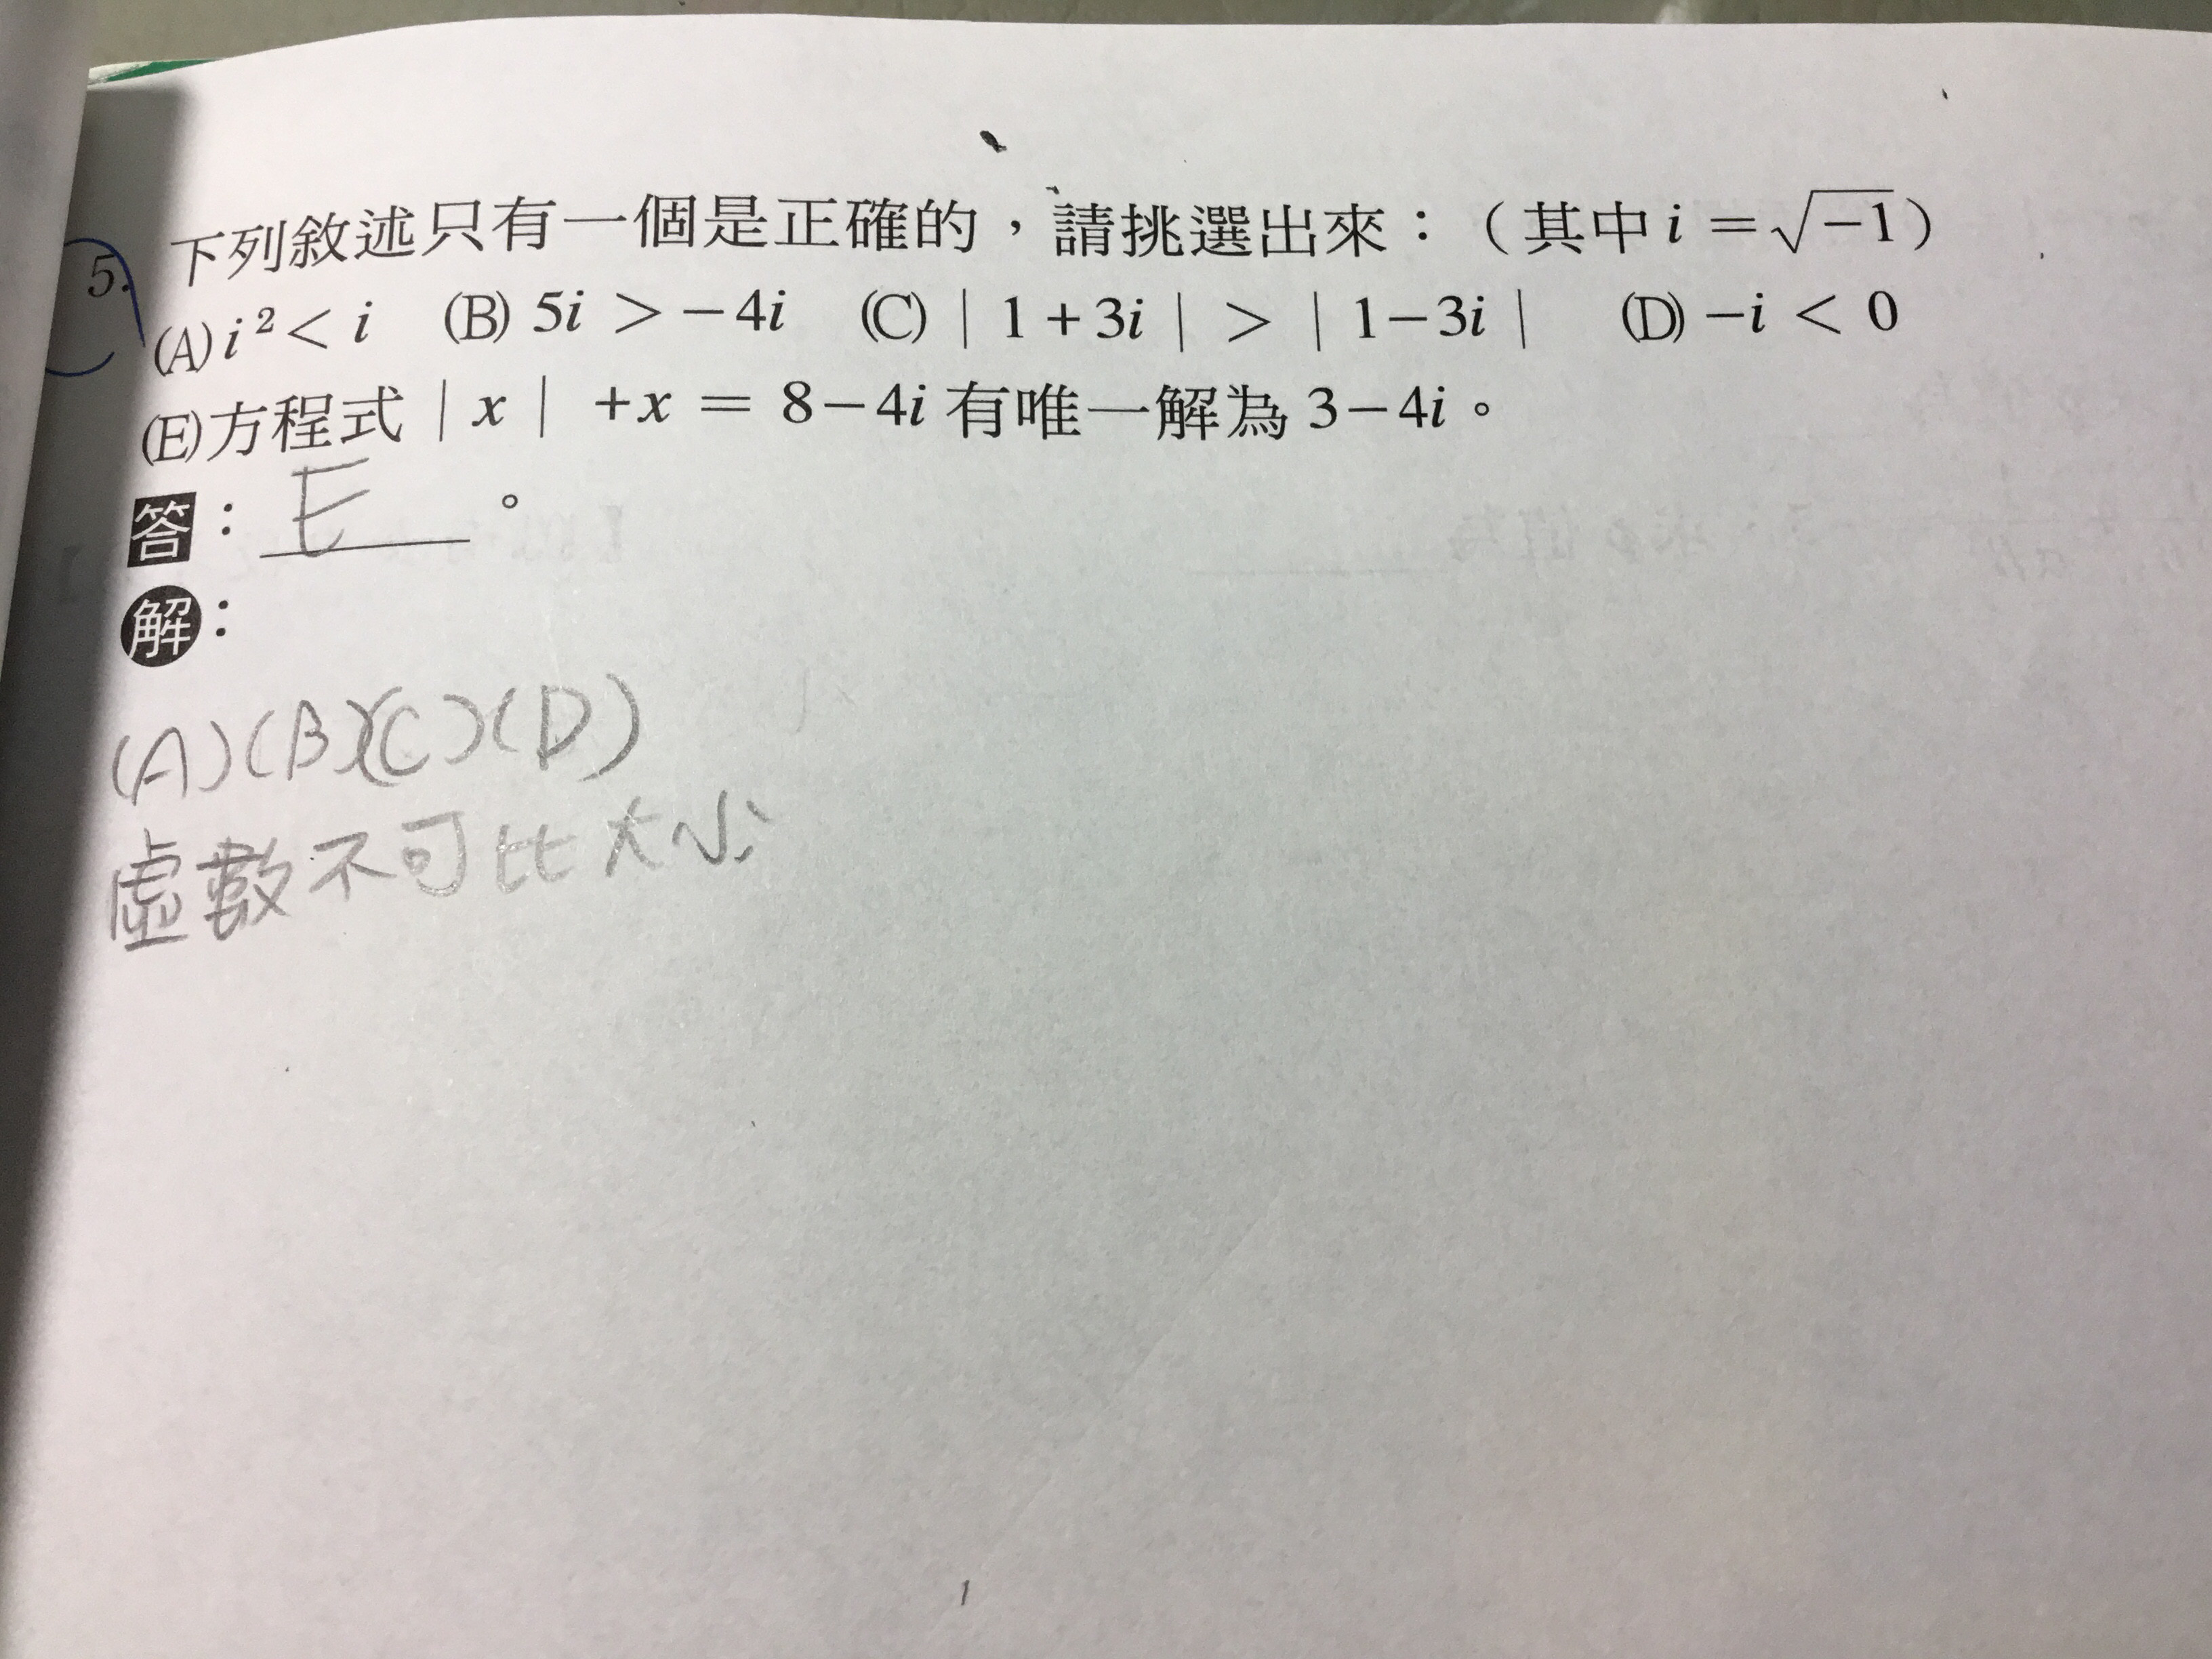 5. 下列敘述只有一個是正確的，請挑選出來：（其中 i = √−1）
(A) i² < i (B) 5i > −4i (C) | 1 + 3i | > | 1 − 3i | (D) −i < 0
(E) 方程式 | x | + x = 8 − 4i 有唯一解為 3 − 4i。
答： E 。
解：
(A)(B)(C)(D)
虛數不可比大小